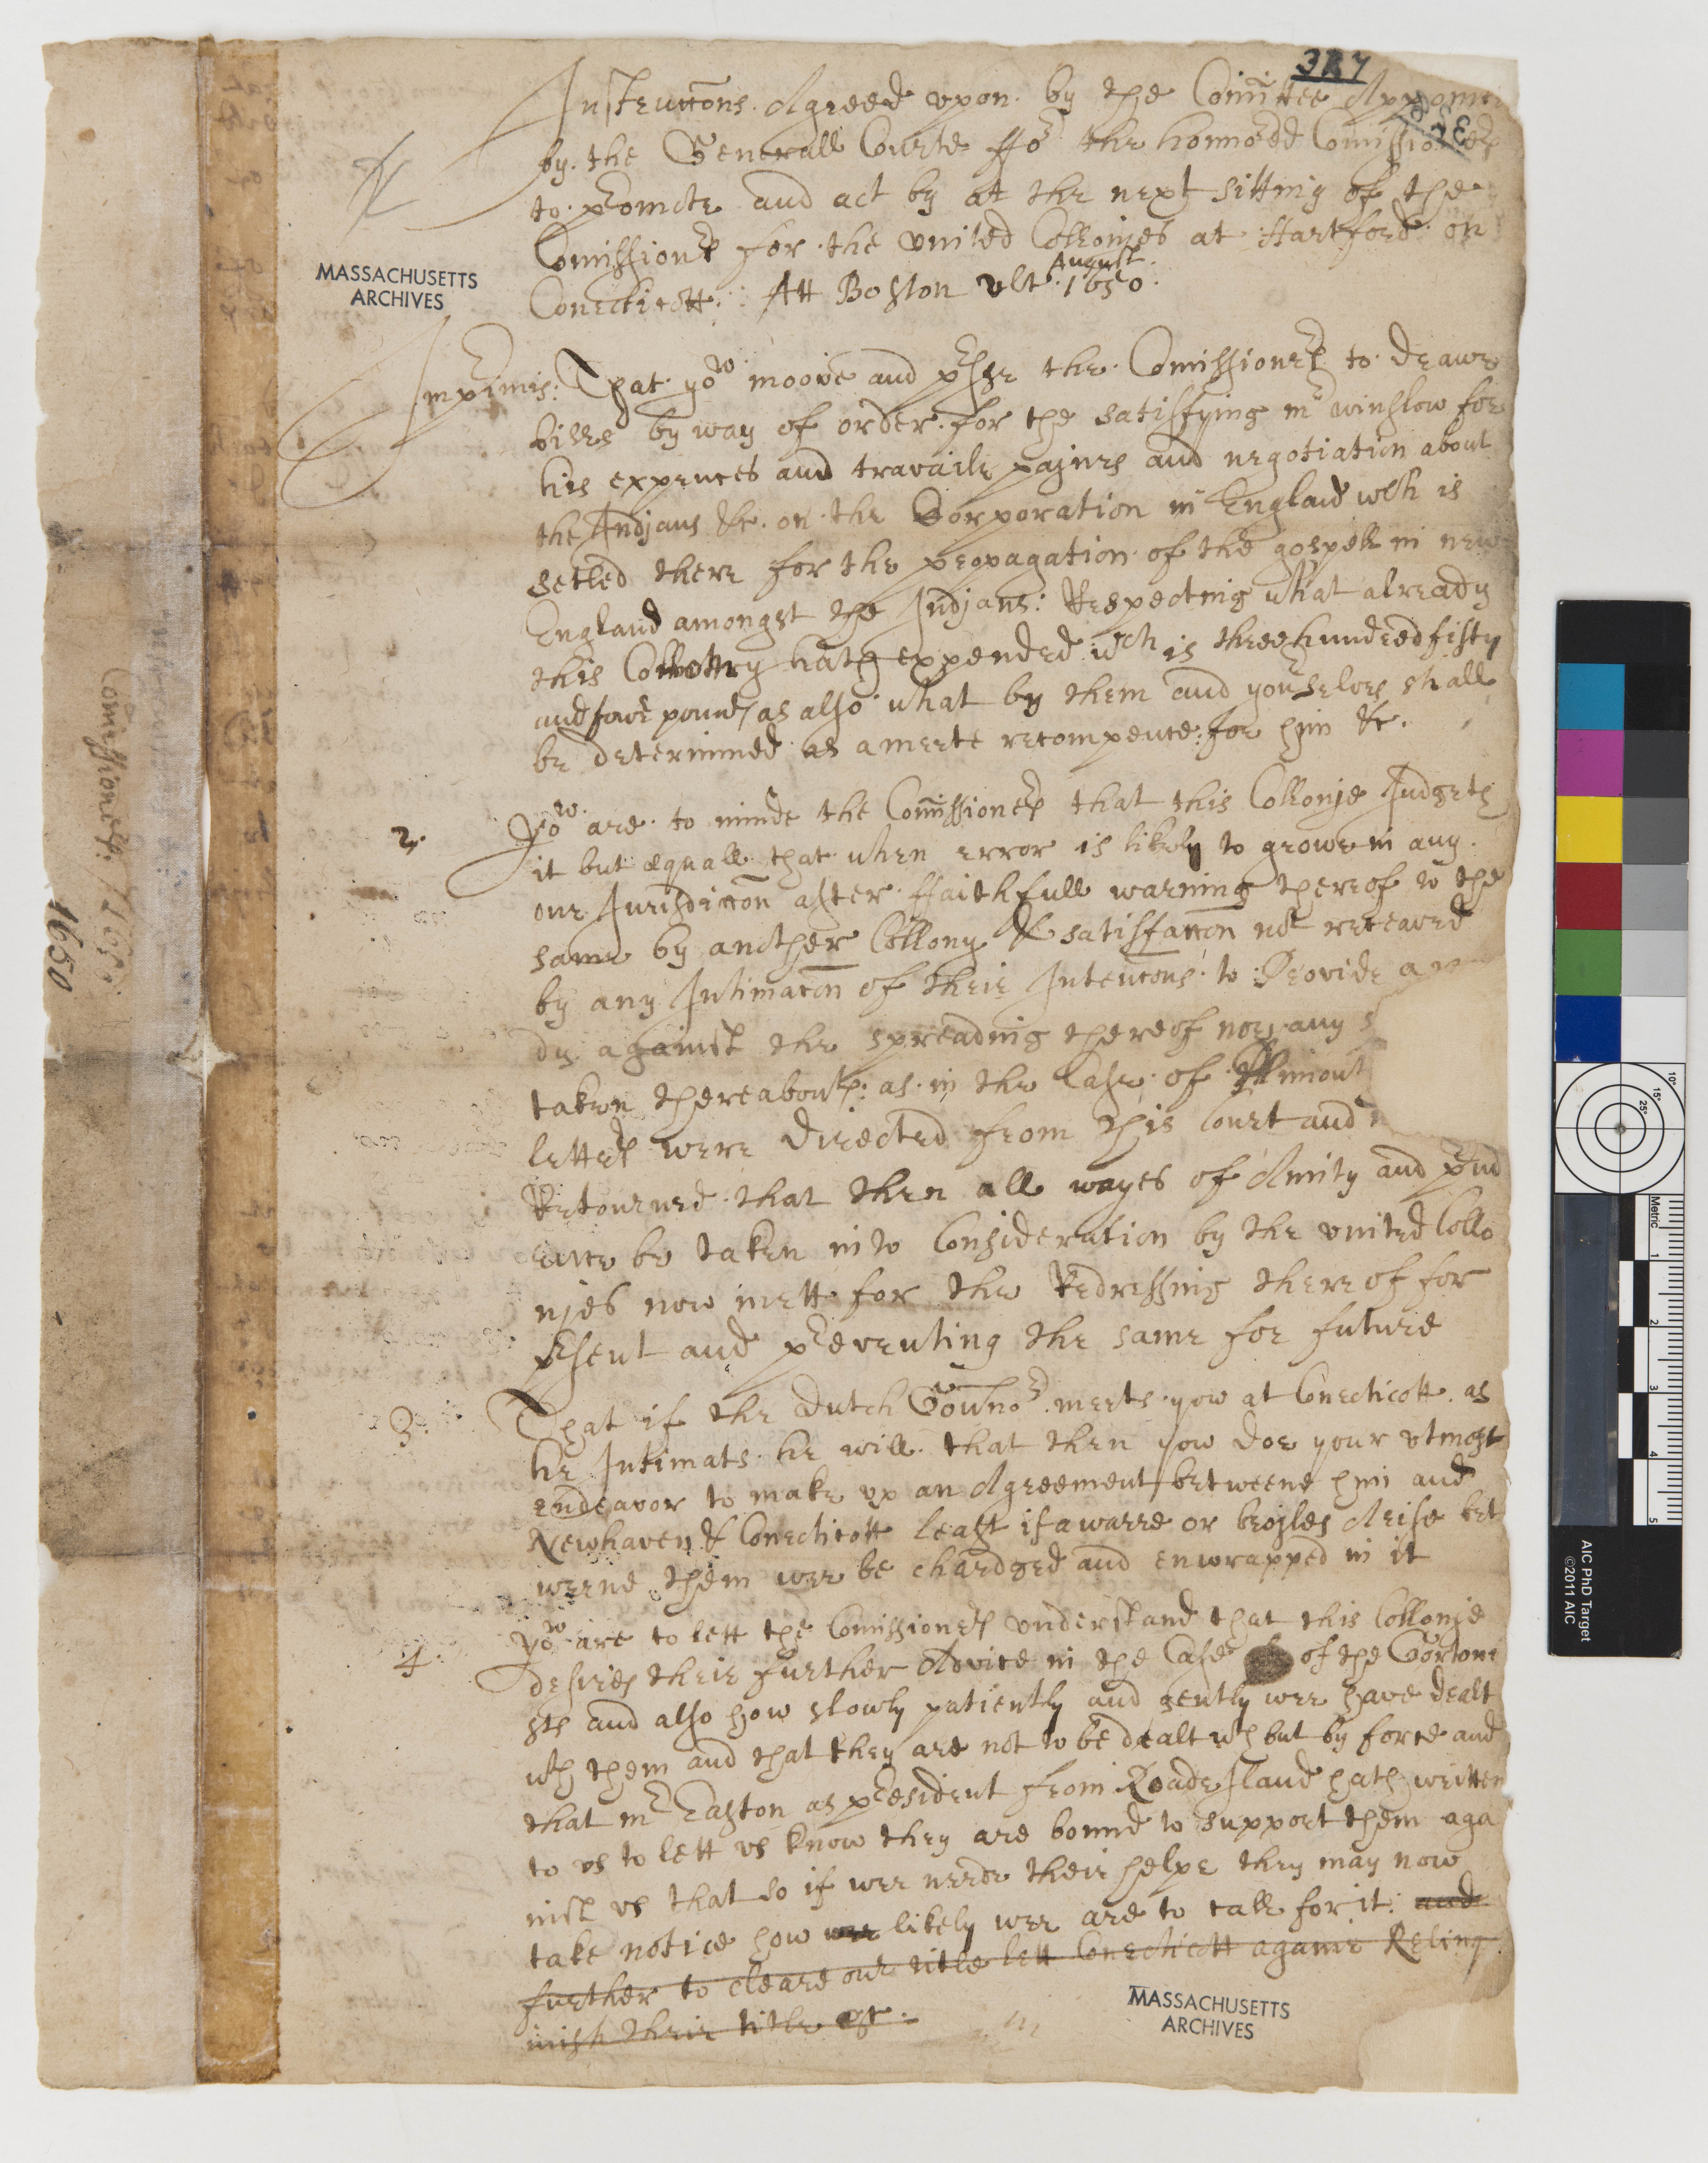 327
Instructions Agreed vpon by the Comittee Appoint
by the Generall Courte ffor the honnored Comissioners
to promote and act by at the next sitting of the
Comissioners for the vnited Collonjes at Hartford on
Conecticott: Att Boston vlt August 1650.
MASSACHUSETTS
ARCHIVES
Imprimis: That yow moove and presse the Comissioners to drawe
billes by way of order for the satisfying mr winslow for
his expences and travaile pajnes and negotiation about
the Indjans &c. on the Corporation in England wch is
setled there for the propagation of the gospell in new
England amongst the Indjans: Respecting what already
this Collony hath expended wch is three hundred fifty
and fowre pounds as also what by them and yourselves shall
be determined as a meete recompence for him &c.
2. Yow are to minde the Comissioners that this Collonje Judgeth
it but æquall that when error is likely to growe in any
one Jurisdiccon after ffaithfull warning thereof to the
same by another Collony & satisfaccon not receaved
by any Intimacon of their Intencons to Provide
dy against the spreading thereof nor any
taken thereabouts: as in the Case of Plimout
letters were directed from this Court and
Retourned that then all wayes of Amity and prud
ence be taken into Consideration by the vnited Collo
njes now mett for the Redressing thereof for
present and preventing the same for future
3. That if the Dutch Gouvnor meets yow at Conecticott as
he Intimats he will that then yow doe your vtmost
endeavor to make vp an Agreement betweene him and
Newhaven & Conecticott least if a warre or brojles Arise bet
weene them wee be chardged and enwrapped in it
4. Yow are to lett the Comissioners vnderstand that this Collonje
desires their further Advice in the Case of the Gortoni
sts and also how slowly patiently and gently wee have dealt
wth them and that they are not to be dealt wth but by force and
that mr Easton as president from Roade Iland hath written
to vs to lett vs know they are bound to support them aga
inst vs that so if wee neede their helpe they may now
take notice how wee likely wee are to call for it: and
further to cleare our title lett Conecticott againe Relinq
uish their title &c.
MASSACHUSETTS
ARCHIVES
Comissioners 1650
1650
AIC PhD Target
©2011 AIC
Metric
1
2
3
4
5
10°
15°
25°